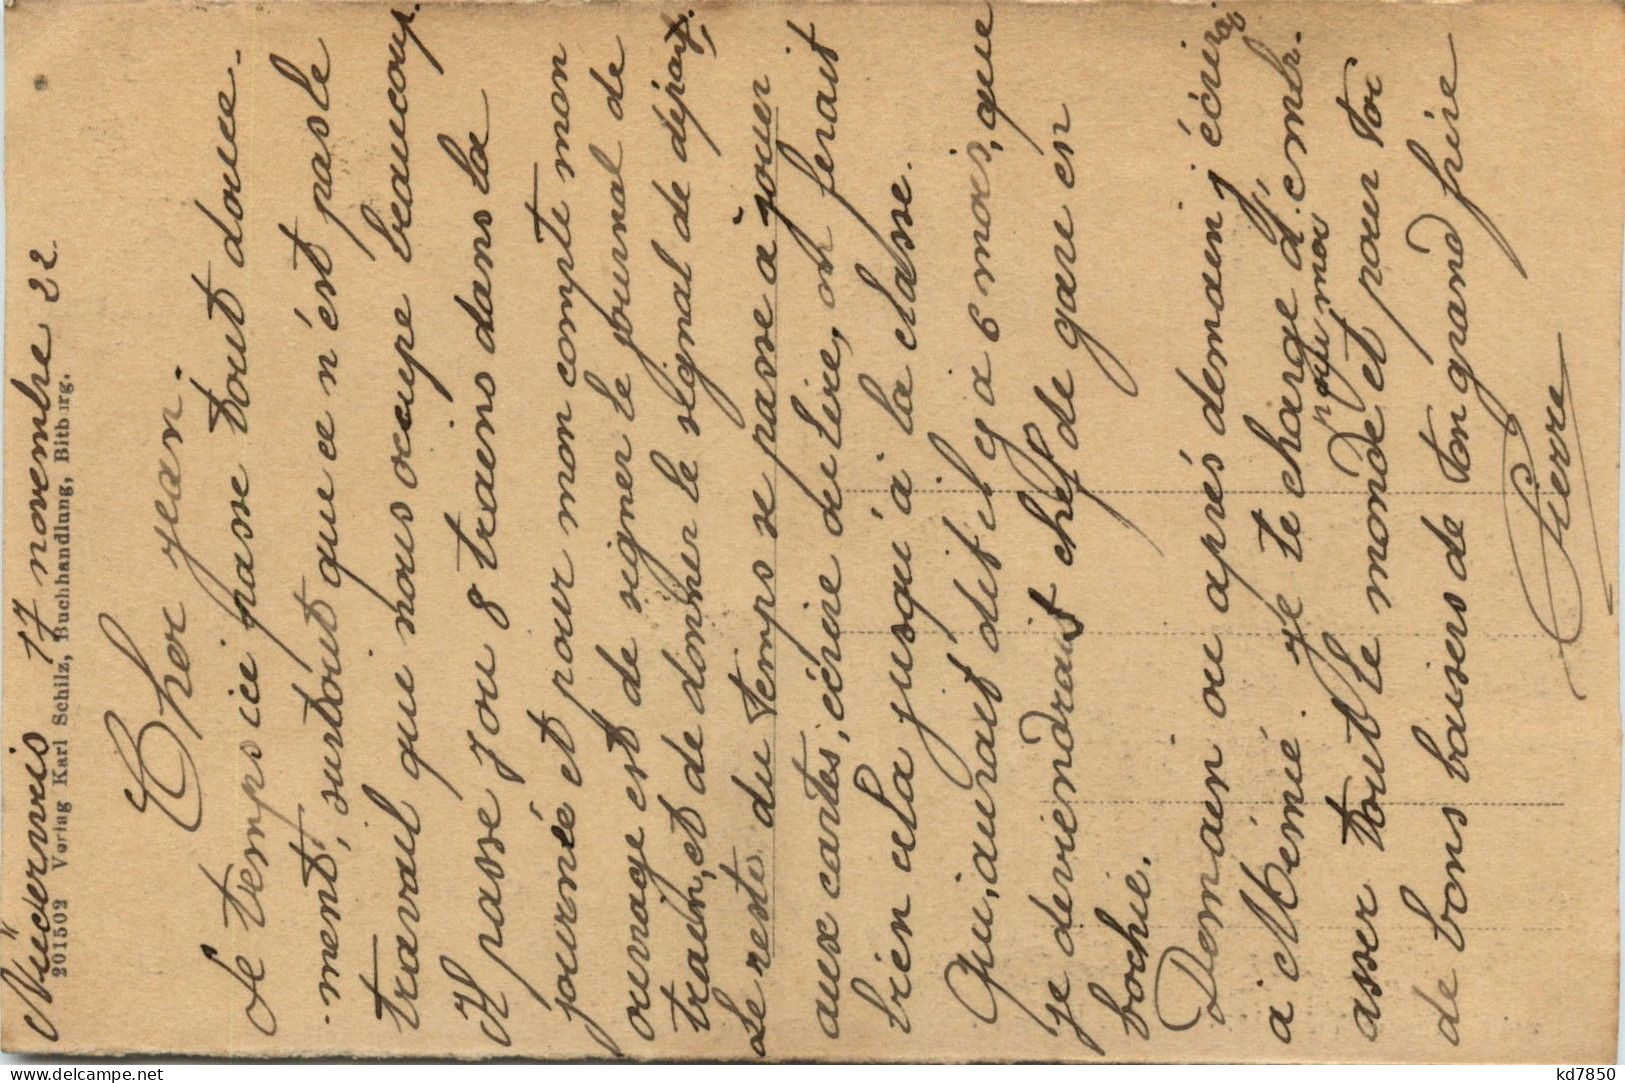 Niederweis 17 novembre 22
201502 Verlag Karl Schilz, Buchhandlung, Bitburg.
Cher Jean.
Le temps ici passe tout douce-
ment, surtout que ce n'est pas le
travail que nous occupe beaucoup.
Il passe 7 ou 8 trains dans la
journée et pour mon compte mon
ouvrage est de signer le journal de
train, et de donner le signal de départ,
Le reste du temps se passe à jouer
aux cartes, écrire du lire, on ferait
bien cela jusqu'à la classe.
Qui, aurait dit il y a 6 mois, que
je deviendrait chef de gare en
bochie.
Demain ou après demain j'écrirai
à Mémé. Je te charge d'emb-
rasser tout le monde pour moi et pour toi
de bons baisers de ton grand frère
Pierre
www.delcampe.net
kd7850